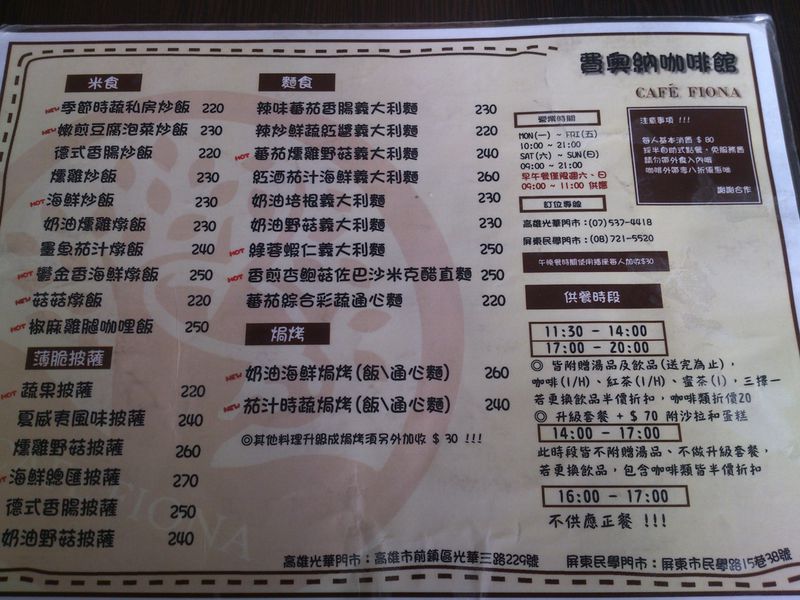 費奧納咖啡館
CAFÉ FIONA
米食
NEW 季節時蔬私房炒飯 220
NEW 嫩煎豆腐泡菜炒飯 230
德式香腸炒飯 220
燻雞炒飯 230
HOT 海鮮炒飯 230
奶油燻雞燉飯 230
墨魚茄汁燉飯 240
HOT 鬱金香海鮮燉飯 250
NEW 菇菇燉飯 220
HOT 椒麻雞腿咖哩飯 250
薄脆披薩
HOT 蔬果披薩 220
夏威夷風味披薩 240
燻雞野菇披薩 260
海鮮總匯披薩 270
德式香腸披薩 250
奶油野菇披薩 240
麵食
辣味蕃茄香腸義大利麵 230
辣炒鮮蔬紅醬義大利麵 220
HOT 蕃茄燻雞野菇義大利麵 240
紅酒茄汁海鮮義大利麵 260
奶油培根義大利麵 230
奶油野菇義大利麵 230
HOT 綠蓉蝦仁義大利麵 250
HOT 香煎杏鮑菇佐巴沙米克醋直麵 250
蕃茄綜合彩蔬通心麵 220
焗烤
NEW 奶油海鮮焗烤(飯\通心麵) 260
NEW 茄汁時蔬焗烤(飯\通心麵) 240
◎其他料理升級成焗烤須另外加收 $ 30 !!!
營業時間
MON(一) ~ FRI(五)
10:00 ~ 21:00
SAT(六) ~ SUN(日)
09:00 ~ 21:00
早午餐僅限週六、日
09:00 ~ 11:00 供應
訂位專線
高雄光華門市：(07)537-4418
屏東民學門市：(08)721-5520
注意事項 !!!
每人基本消費 $ 80
採半自助式點餐，免服務費
請勿帶外食入內哦
咖啡外帶享八折優惠呦
謝謝合作
午晚餐時間使用插座每人加收$30
供餐時段
11:30 - 14:00
17:00 - 20:00
◎ 皆附贈湯品及飲品(送完為止)，
咖啡(I/H)、紅茶(I/H)、蜜茶(I)，三擇一
若更換飲品半價折扣，咖啡類折價20
◎ 升級套餐 + $ 70 附沙拉和蛋糕
14:00 - 17:00
此時段皆不附贈湯品、不做升級套餐，
若更換飲品，包含咖啡類皆半價折扣
16:00 - 17:00
不供應正餐 !!!
高雄光華門市：高雄市前鎮區光華三路229號 屏東民學門市：屏東市民學路15巷38號